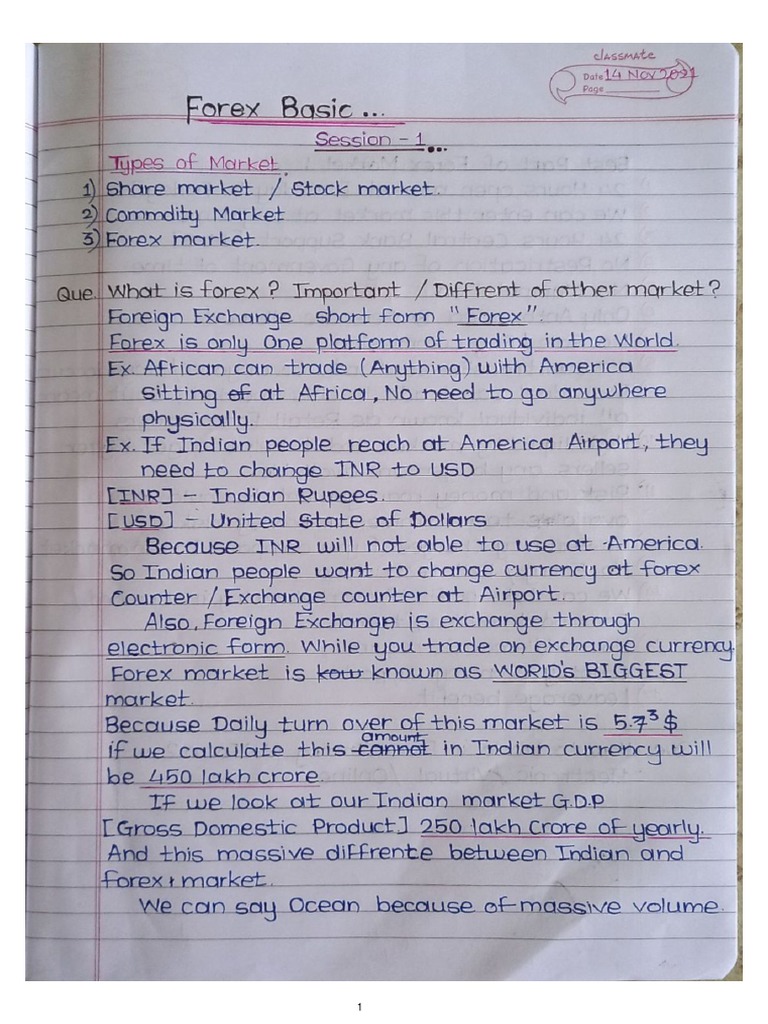 classmate
Date 14 NOV 2021
Page
Forex Basic...
Session - 1...
Types of Market.
1) Share market / Stock market.
2) Commdity Market
3) Forex market.
Que. What is forex ? Important / Diffrent of other market?
Foreign Exchange short form "Forex".
Forex is only One platform of trading in the World.
Ex. African can trade (Anything) with America
sitting of at Africa, No need to go anywhere
physically.
Ex. If Indian people reach at America Airport, they
need to change INR to USD
[INR] - Indian Rupees.
[USD] - United State of Dollars
Because INR will not able to use at America.
So Indian people want to change currency at forex
Counter / Exchange counter at Airport.
Also, Foreign Exchange is exchange through
electronic form. While you trade on exchange currency.
Forex market is kow known as WORLD's BIGGEST
market.
Because Daily turn over of this market is 5.7³ $
amount
if we calculate this cannot in Indian currency will
be 450 lakh crore.
If we look at our Indian market G.D.P
[Gross Domestic Product] 250 lakh Crore of yearly.
And this massive diffrente between Indian and
forex market.
We can say Ocean because of massive volume.
1